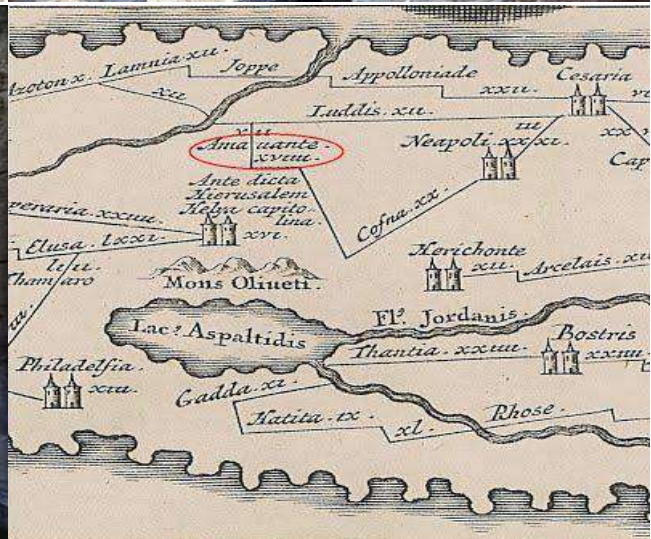 Azoton x. Lamnia xii.
Joppe
Appolloniade
xxii.
Cesaria
xii
Luddis. xii.
xii
Ama uante.
xviiii.
iii
Neapoli. xx xi.
xx
Cap
Ante dicta
Hierusalem
Helya capito-
lina.
xvi.
Cofna. xx.
peraria. xxiiii.
Elusa. lxxi.
Thamaro
Mons Oliueti.
Herichonte
xii.
Arcelais. xii
Lac.s Aspaltidis
Fl.s Jordanis.
Bostris
xxiiii
Thantia. xxiiii.
Philadelfia.
xiii.
Gadda. xi.
Hatita. ix.
xl.
Rhose.